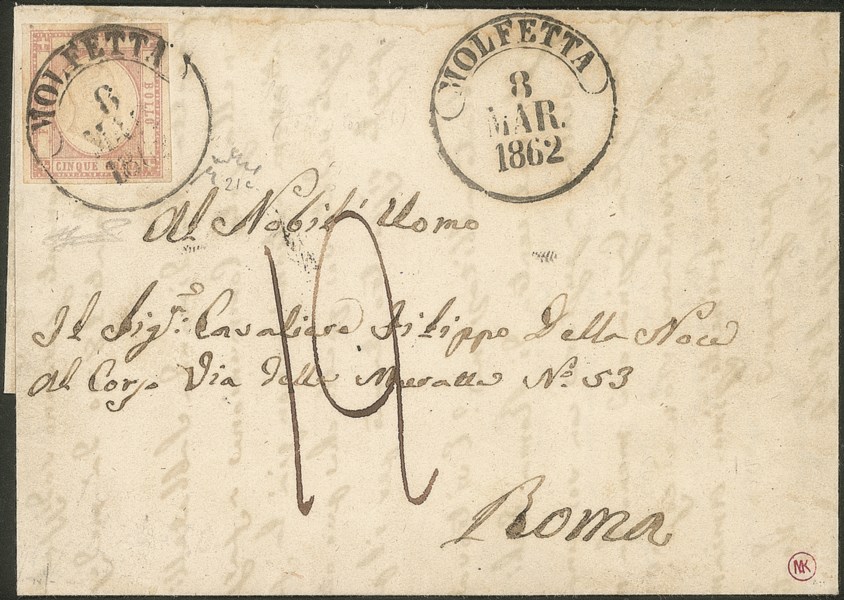 MOLFETTA
8
BOLLO
CINQUE
MOLFETTA
8
MAR.
1862
21c.
Al Nobil' Uomo
19
Il Sig.r Cavaliere Filippo Della Noce
Al Corso Via delle Muratte No. 53
Roma
MK